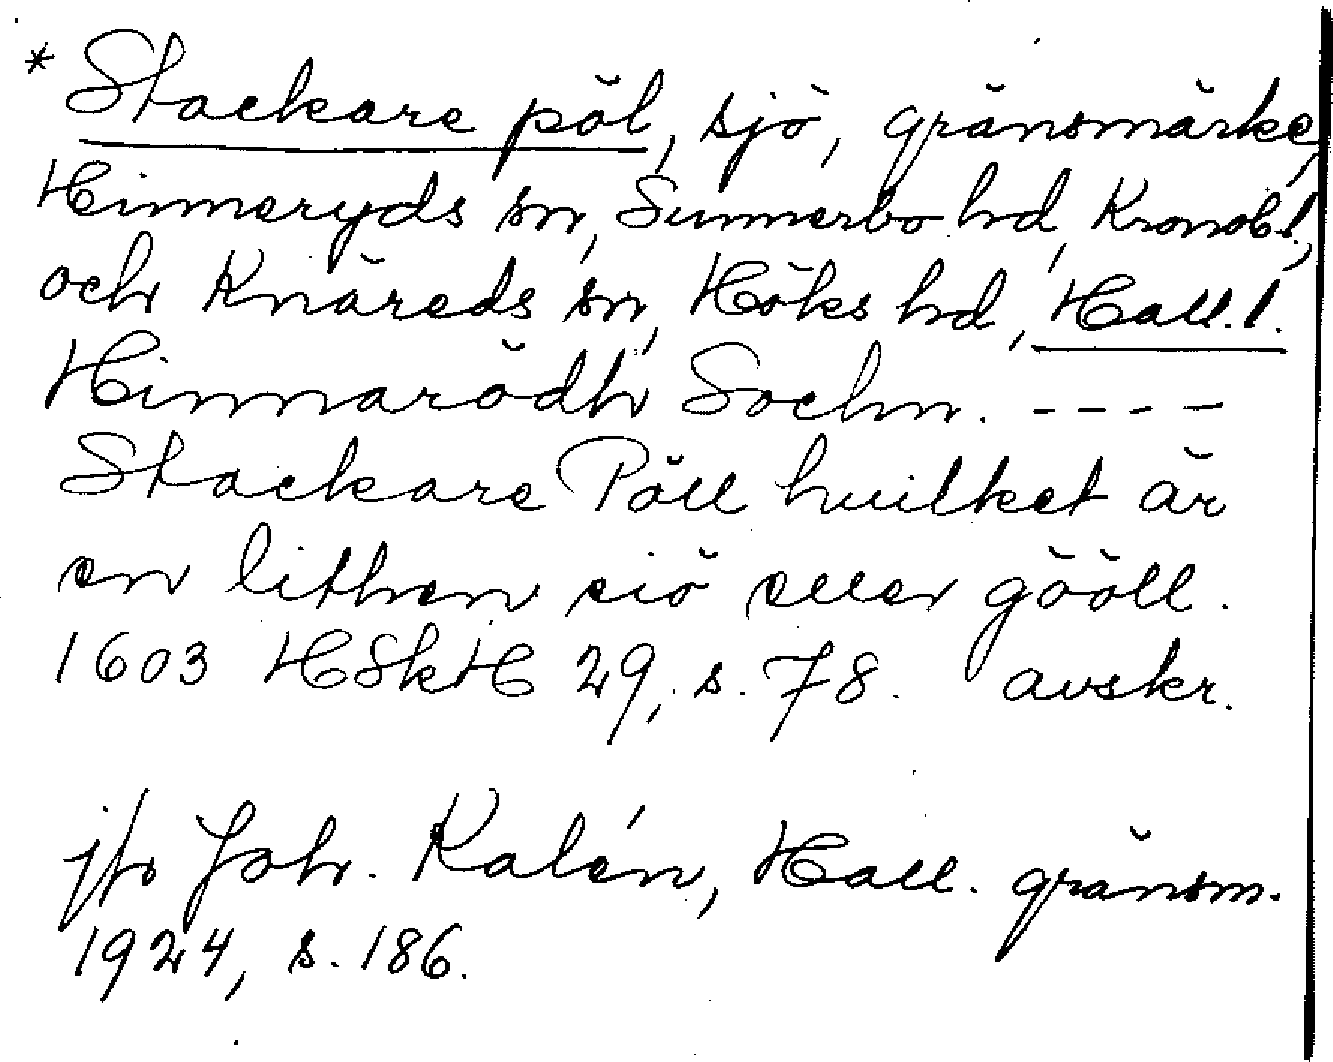 * Stackare pöl, sjö, gränsmärke,
Hinneryds sn, Sunnerbo hd, Kronob. l.,
och Knäreds sn, Höks hd, Hall. l.
Hinnarödh Sochn. ----
Stackare Pöll huilket är
en lithen siö eller gööll.
1603 HSkH 29, s. 78. avskr.
jfr Joh. Kalén, Hall. gränsm.
1924, s. 186.